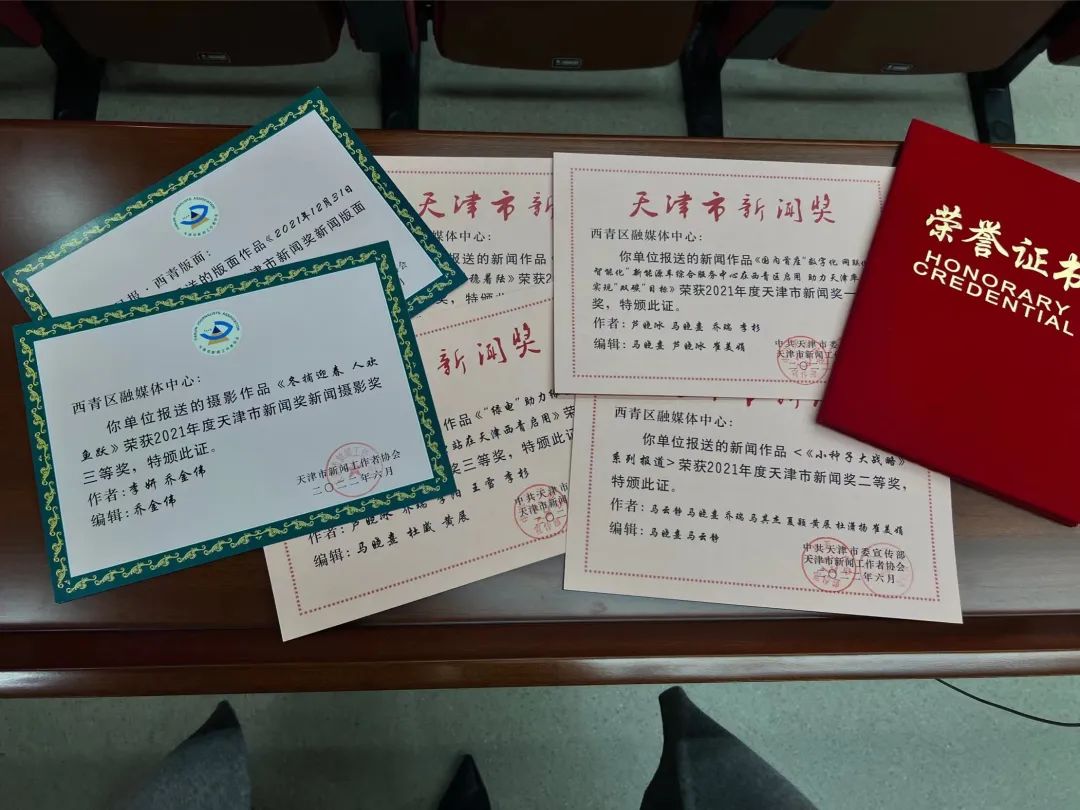 2021年12月31日
日报·西青版面:
送的版面作品《
天津市新闻奖新闻版面
西青区融媒体中心:
你单位报送的摄影作品《冬捕迎春 人欢
鱼跃》荣获2021年度天津市新闻奖新闻摄影奖
三等奖,特颁此证。
作者:李妍 乔金伟
编辑:乔金伟
天津市新闻工作者协会
二〇二二年六月
天津市新
媒体中心:
报送的新闻作品《
稳着陆》荣获2021年
奖,特颁此证。
新闻奖
作品《“绿电”助力
站在天津西青启用》荣
奖三等奖,特颁此证。
芦晓冰 乔瑞 李阳 王雷 李杉
编辑:马晓鏊 杜威 黄展
中共天津市
天津市新闻
天津市新闻奖
西青区融媒体中心:
你单位报送的新闻作品《国内首座“数字化 网联化
智能化”新能源车综合服务中心在西青区启用 助力天津率
实现“双碳”目标》荣获2021年度天津市新闻奖一
奖,特颁此证。
作者:芦晓冰 马晓鏊 乔瑞 李杉
编辑:马晓鏊 芦晓冰 崔美娟
中共天津市委
天津市新闻工作
西青区融媒体中心:
你单位报送的新闻作品<《小种子大战略》
系列报道>荣获2021年度天津市新闻奖二等奖,
特颁此证。
作者:马云静 马晓鏊 乔瑞 马其杰 夏颖 黄展 杜潇杨 崔美娟
编辑:马晓鏊 马云静
中共天津市委宣传部
天津市新闻工作者协会
二〇二二年六月
荣誉证书
HONORARY
CREDENTIAL